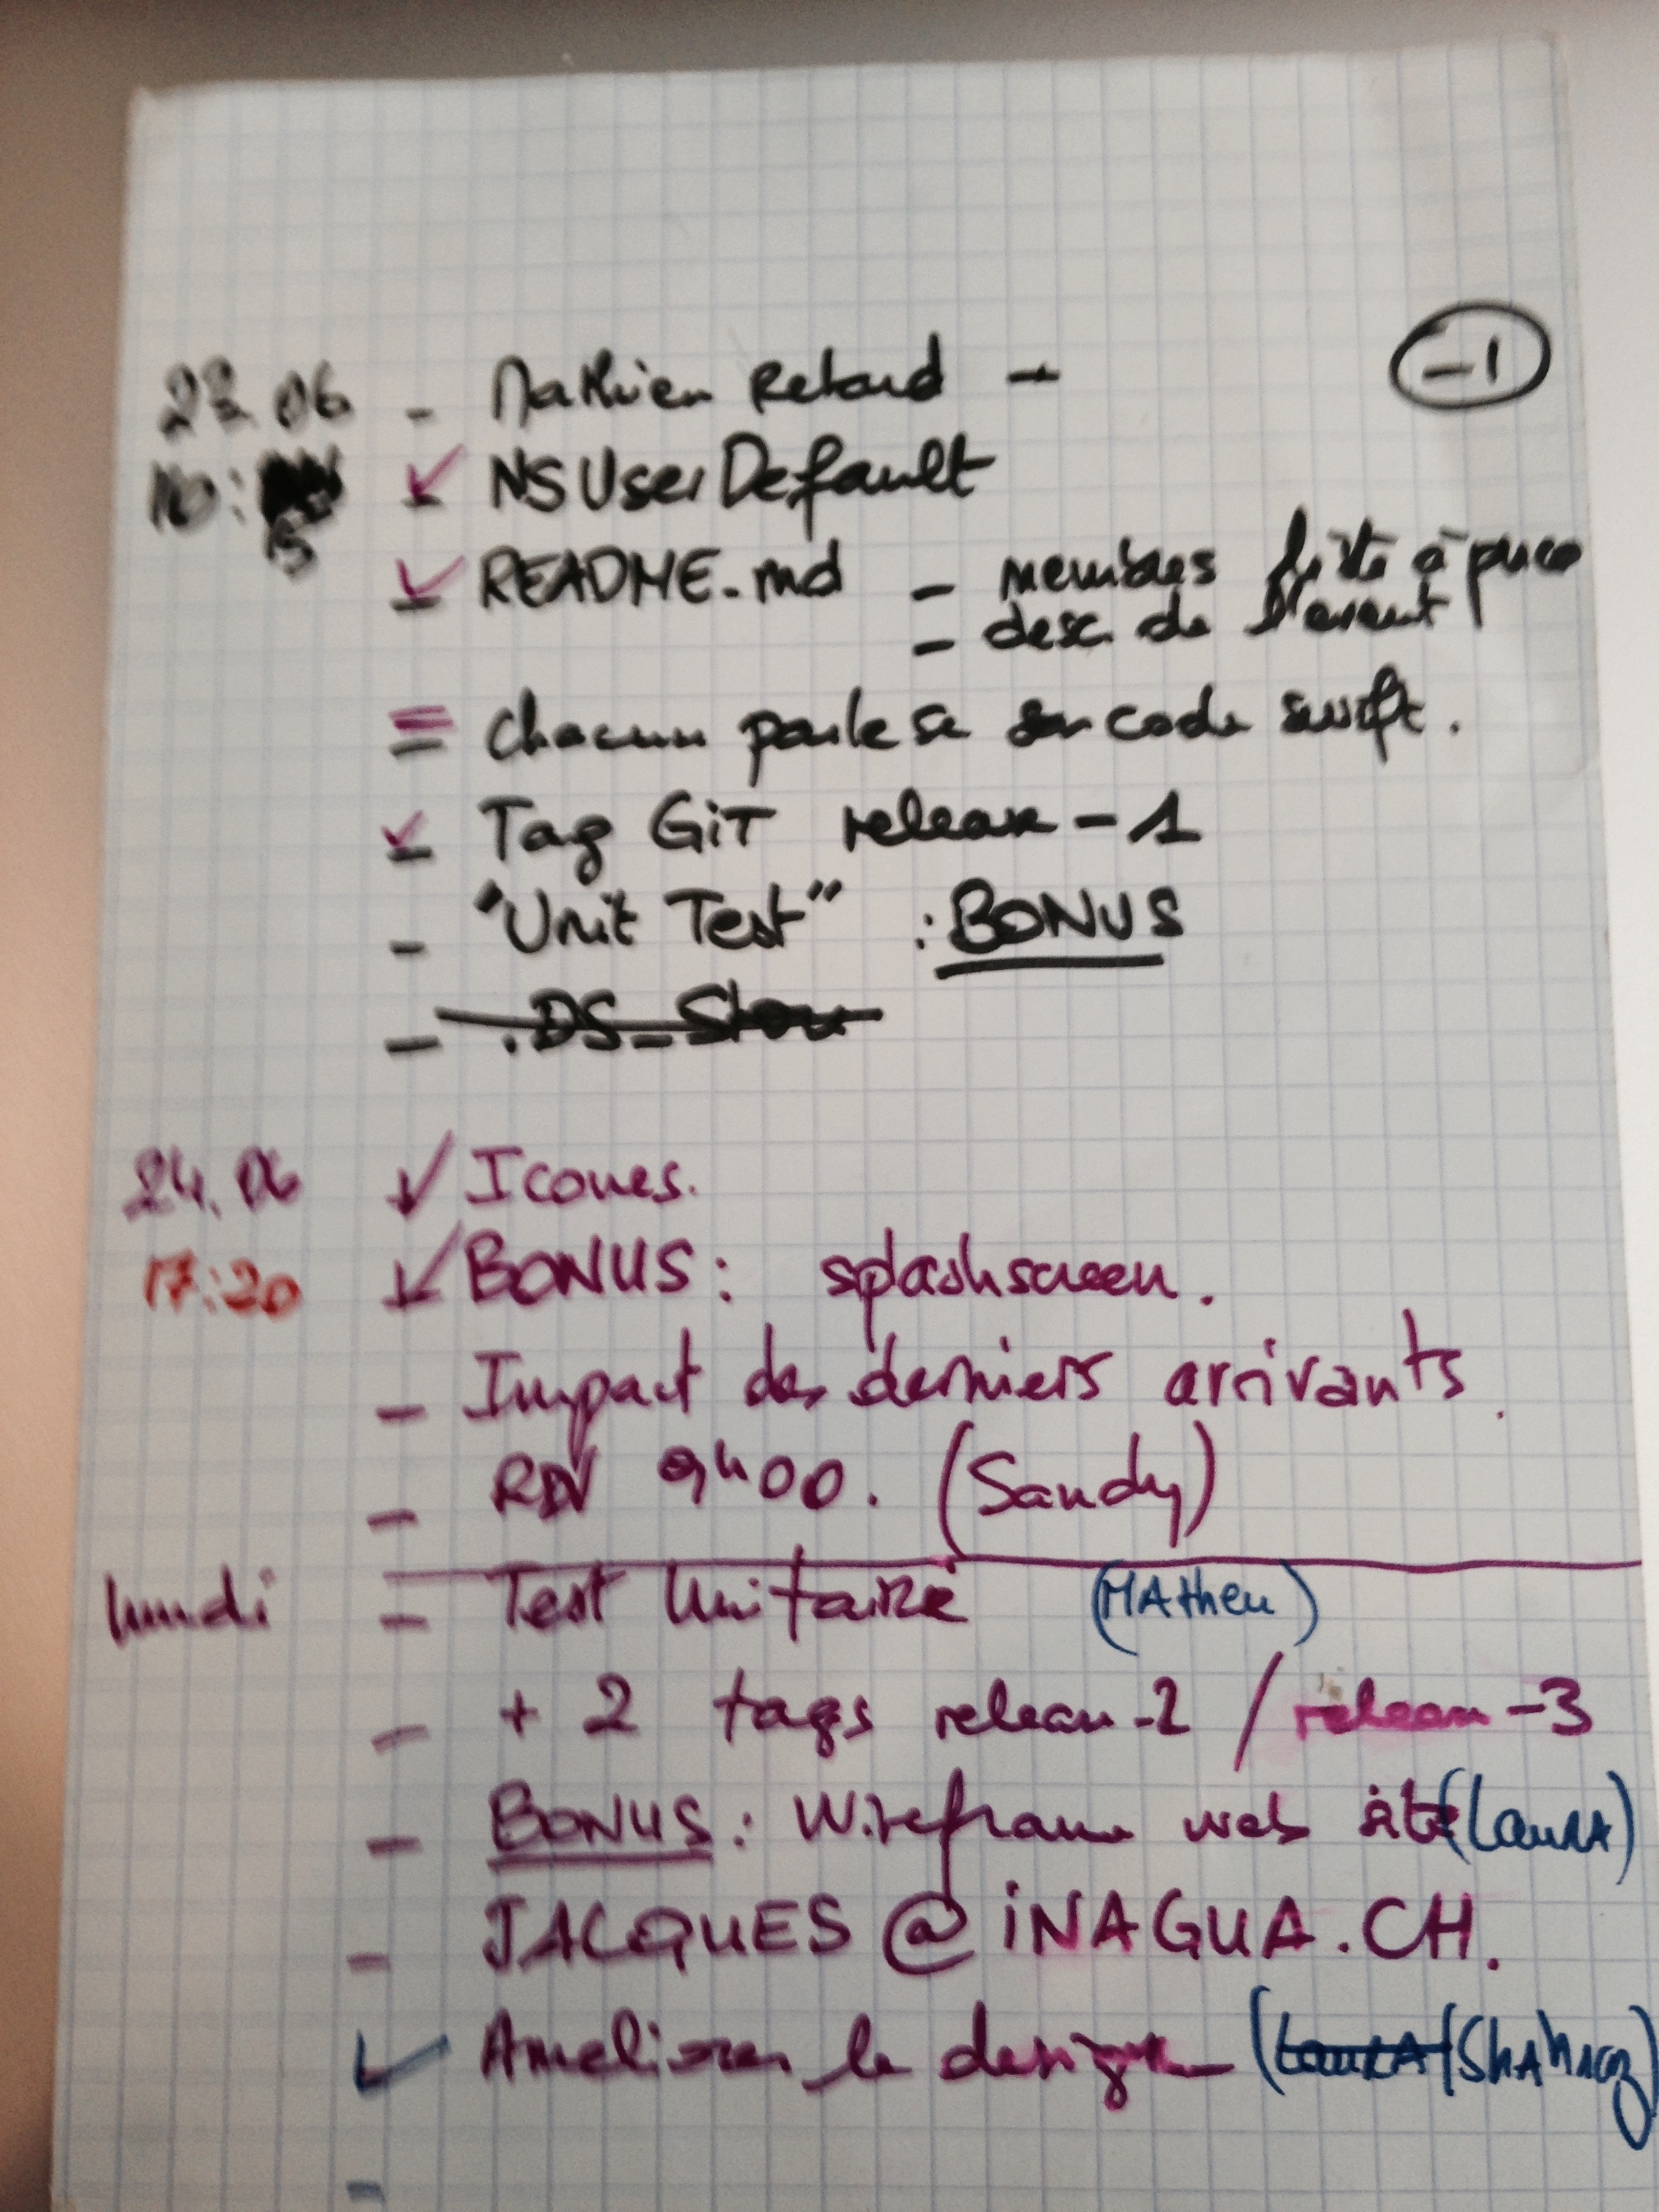 23.06 - Mathieu Retard - -1
10:15 - NSUserDefault
- README.md - membres liste à puce
- desc. de l'event
- chacun parle de son code swift.
- Tag GiT release-1
- "Unit Test" : BONUS
- .DS_Store
24.06 Icones.
17:20 BONUS: splashscreen.
- Impact des derniers arrivants.
- RDV 9h00. (Sandy)
lundi - Test Unitaire (MAtheu)
- + 2 tags release-2 / release-3
- BONUS: Wireframe web site (LauRA)
- JACQUES@iNAGUA.CH.
Ameliorer le design (LauRA/ShAhnaz)
-